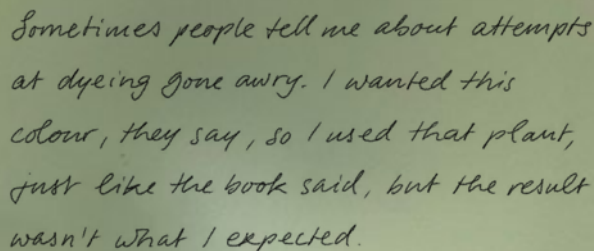 Sometimes people tell me about attempts
at dyeing gone awry. I wanted this
colour, they say, so I used that plant,
just like the book said, but the result
wasn't what I expected.